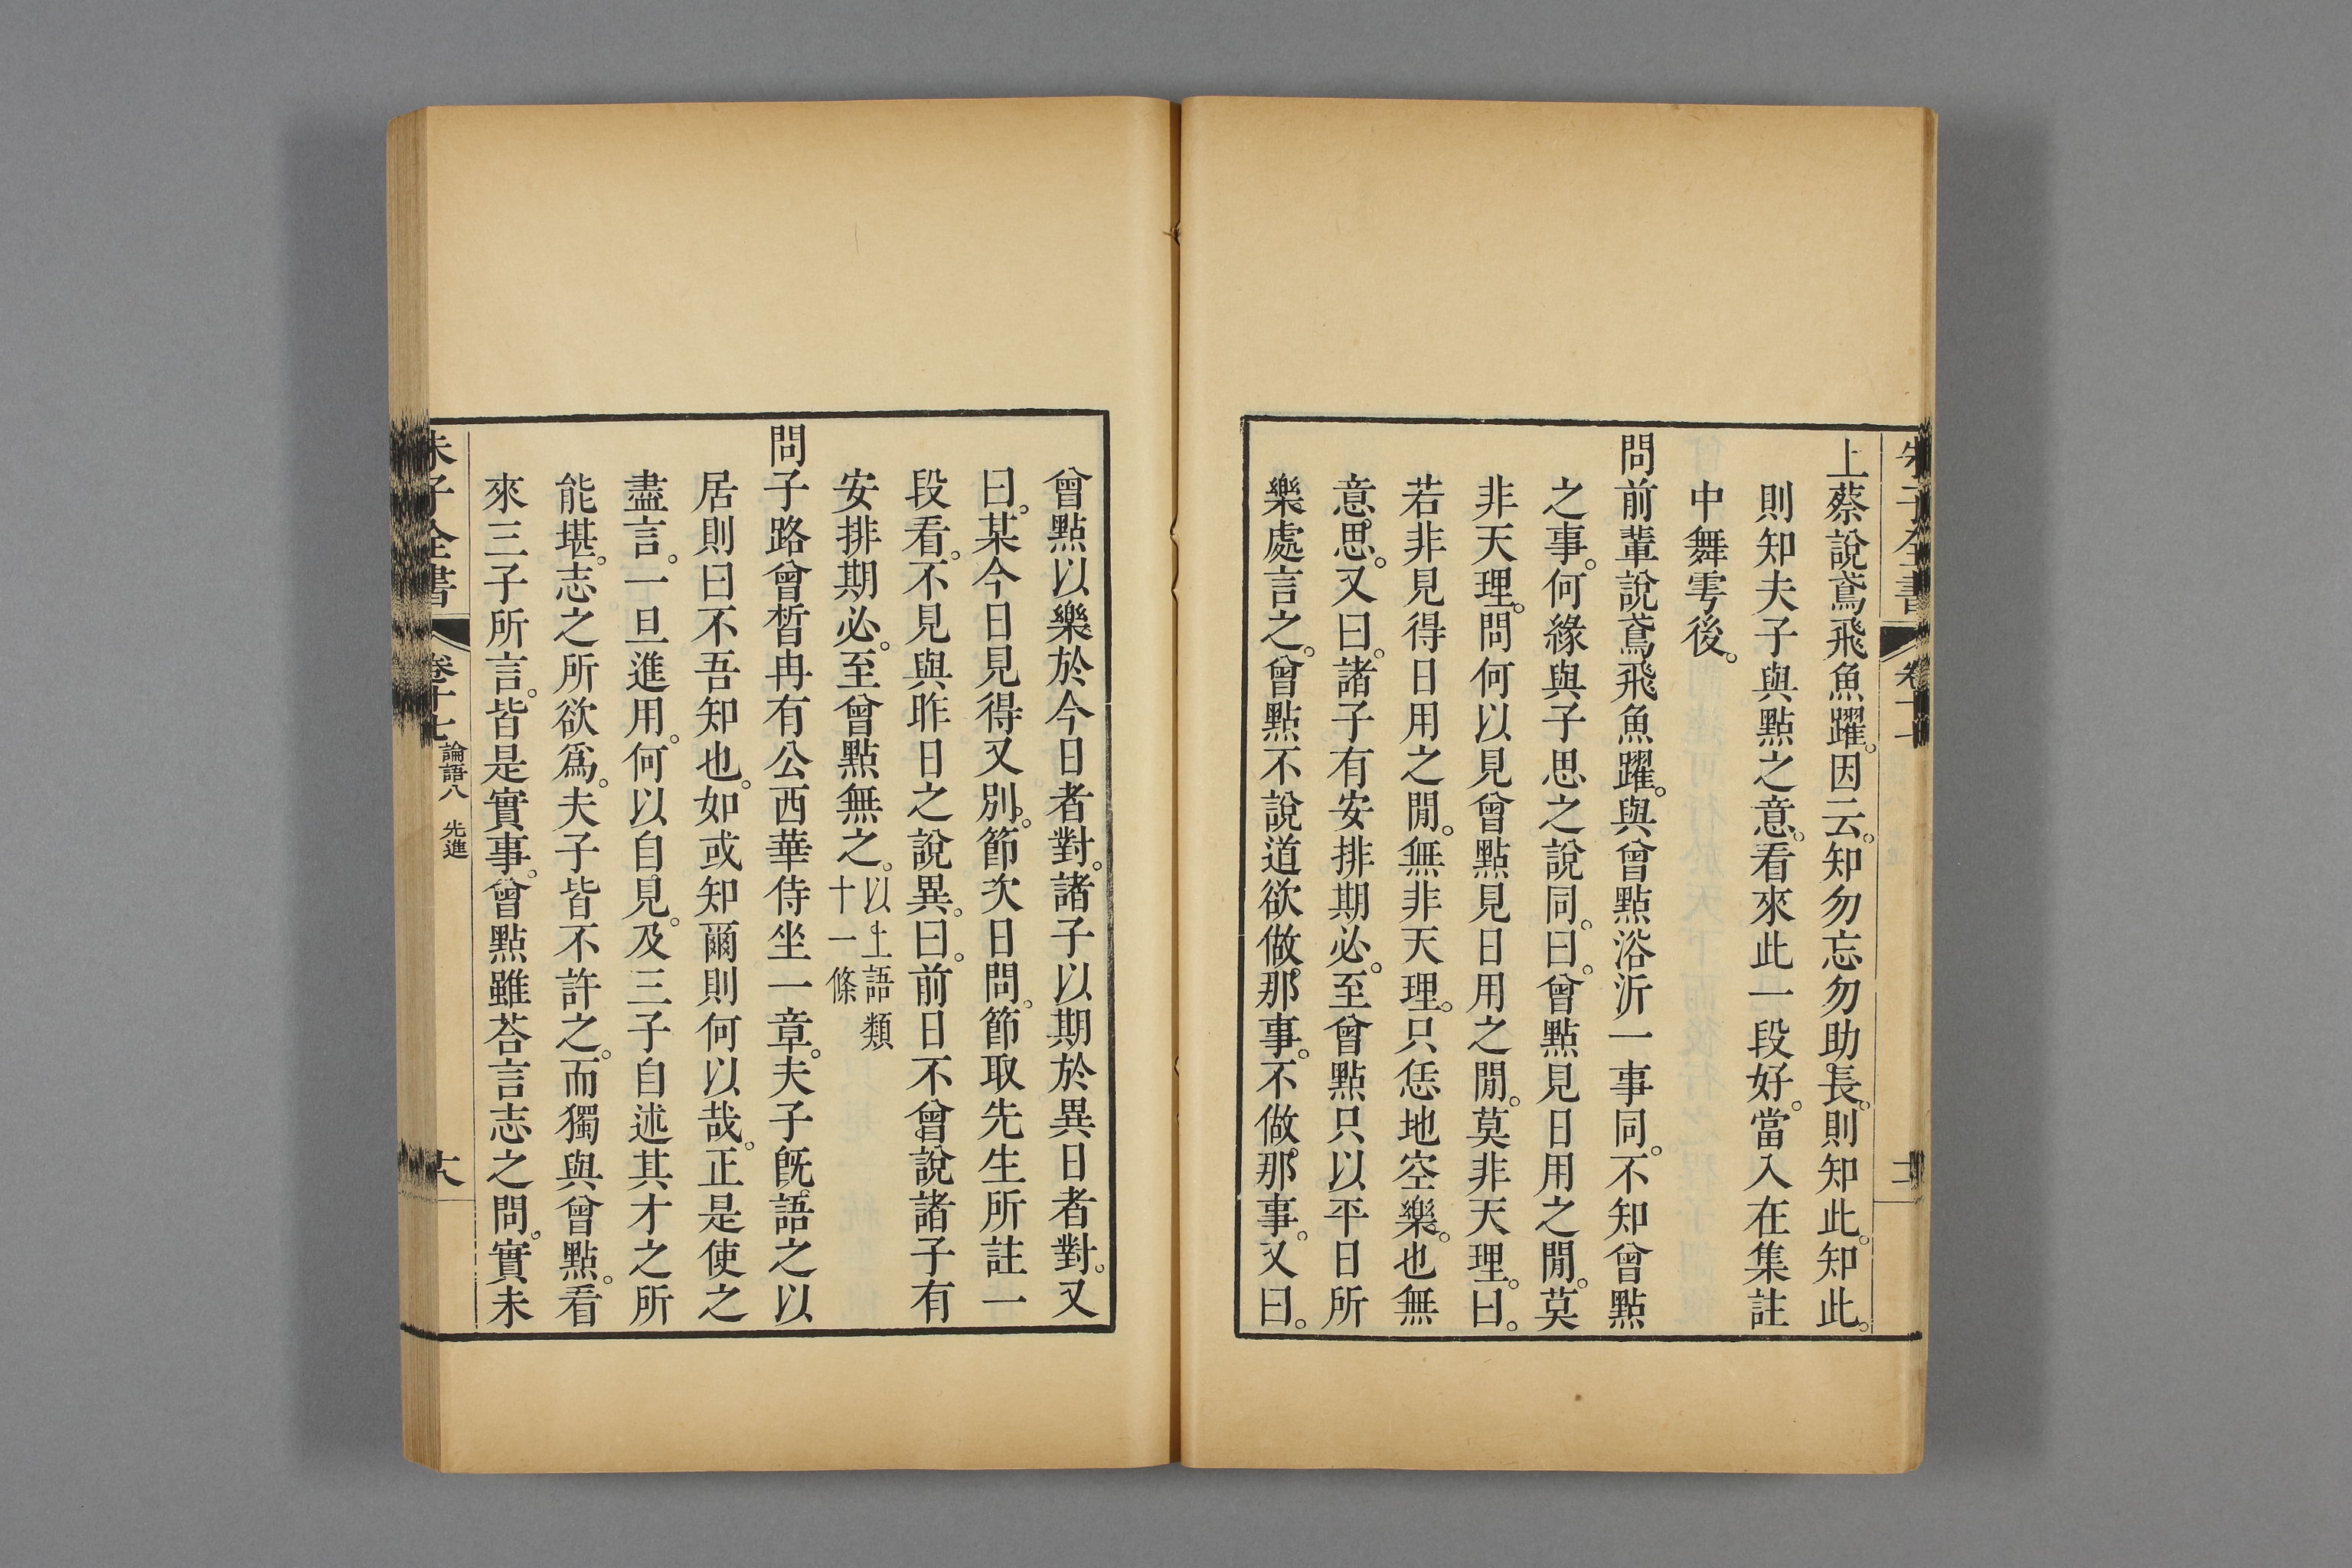 上蔡說鳶飛魚躍。因云。知勿忘勿助長。則知此。知此。
則知夫子與點之意。看來此一段好。當入在集註
中舞雩後。
問前輩說鳶飛魚躍。與曾點浴沂一事同。不知曾點
之事。何緣與子思之說同。曰。曾點見日用之閒。莫
非天理。問何以見曾點見日用之閒。莫非天理。曰。
若非見得日用之閒。無非天理。只恁地空樂。也無
意思。又曰。諸子有安排期必。至曾點只以平日所
樂處言之。曾點不說道欲做那事。不做那事。又曰。
曾點以樂於今日者對。諸子以期於異日者對。又
曰。某今日見得又別。節次日問。節取先生所註一
段看。不見與昨日之說異。曰。前日不曾說諸子有
安排期必。至曾點無之。以上語類
十一條
問子路曾晳冉有公西華侍坐一章。夫子旣語之以
居則曰不吾知也。如或知爾則何以哉。正是使之
盡言。一旦進用。何以自見。及三子自述其才之所
能堪。志之所欲爲。夫子皆不許之。而獨與曾點。看
來三子所言。皆是實事。曾點雖荅言志之問。實未
朱子全書
卷十七
論語八 先進